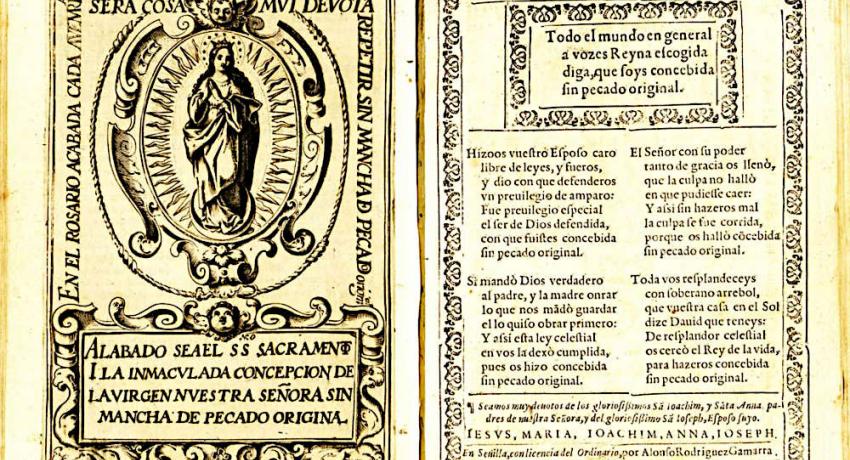 SERA COSA MVI DEVOTA
EN EL ROSARIO ACABADA CADA AVEMRI
REPETIR SIN MANCHA D PECAD Original
ALABADO SEA EL S S SACRAMENTO
I LA INMACVLADA CONCEPCION DE
LA VIRGEN NVESTRA SEÑORA SIN
MANCHA DE PECADO ORIGINAL
Todo el mundo en general
a vozes Reyna escogida
diga, que soys concebida
sin pecado original.
Hizoos vuestro Esposo caro
libre de leyes, y fueros,
y dio con que defenderos
vn preuilegio de amparo:
Fue preuilegio especial
el ser de Dios defendida,
con que fuistes concebida
sin pecado original.
Si mandò Dios verdadero
al padre, y la madre onrar
lo que nos mãdò guardar
el lo quiso obrar primero:
Y assi esta ley celestial
en vos la dexò cumplida,
pues os hizo concebida
sin pecado original.
El Señor con su poder
tanto de gracia os llenò,
que la culpa no hallò
en que pudiesse caer:
Y assi sin hazeros mal
la culpa se fue corrida,
porque os hallò cõcebida
sin pecado original.
Toda vos resplandeceys
con soberano arrebol,
que vuestra casa en el Sol
dize Dauid que teneys:
De resplandor celestial
os cercò el Rey de la vida,
para hazeros concebida
sin pecado original.
¶ Seamos muy deuotos de los gloriosissimos Sã Ioachim, y Sãta Anna. pa-
dres de nuestra Señora, y del gloriosissimo Sã Ioseph, Esposo suyo.
IESVS, MARIA, IOACHIM, ANNA, IOSEPH.
En Seuilla, con licencia del Ordinario, por Alonso Rodriguez Gamarra.